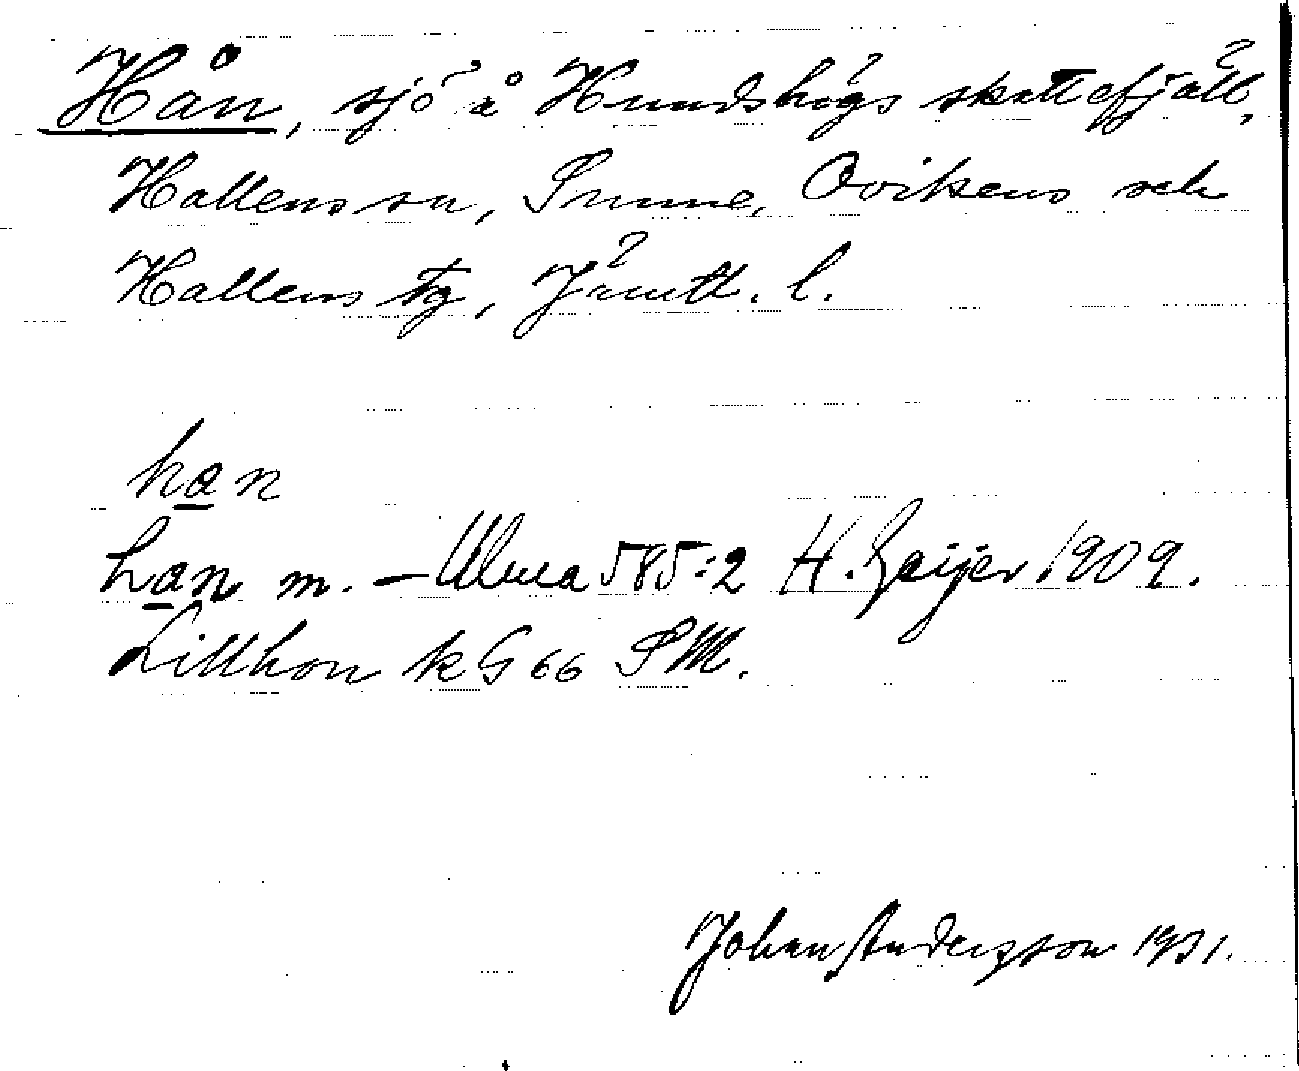 Hån, sjö å Hundshögs skattefjäll,
Hallens sn, Sunne, Ovikens och
Hallens tg, Jämtl. l.
han
han m. – Ulma 585:2 H. Geijer 1909.
Lillhon kG 66 SM.
Johan Andersson 1931.